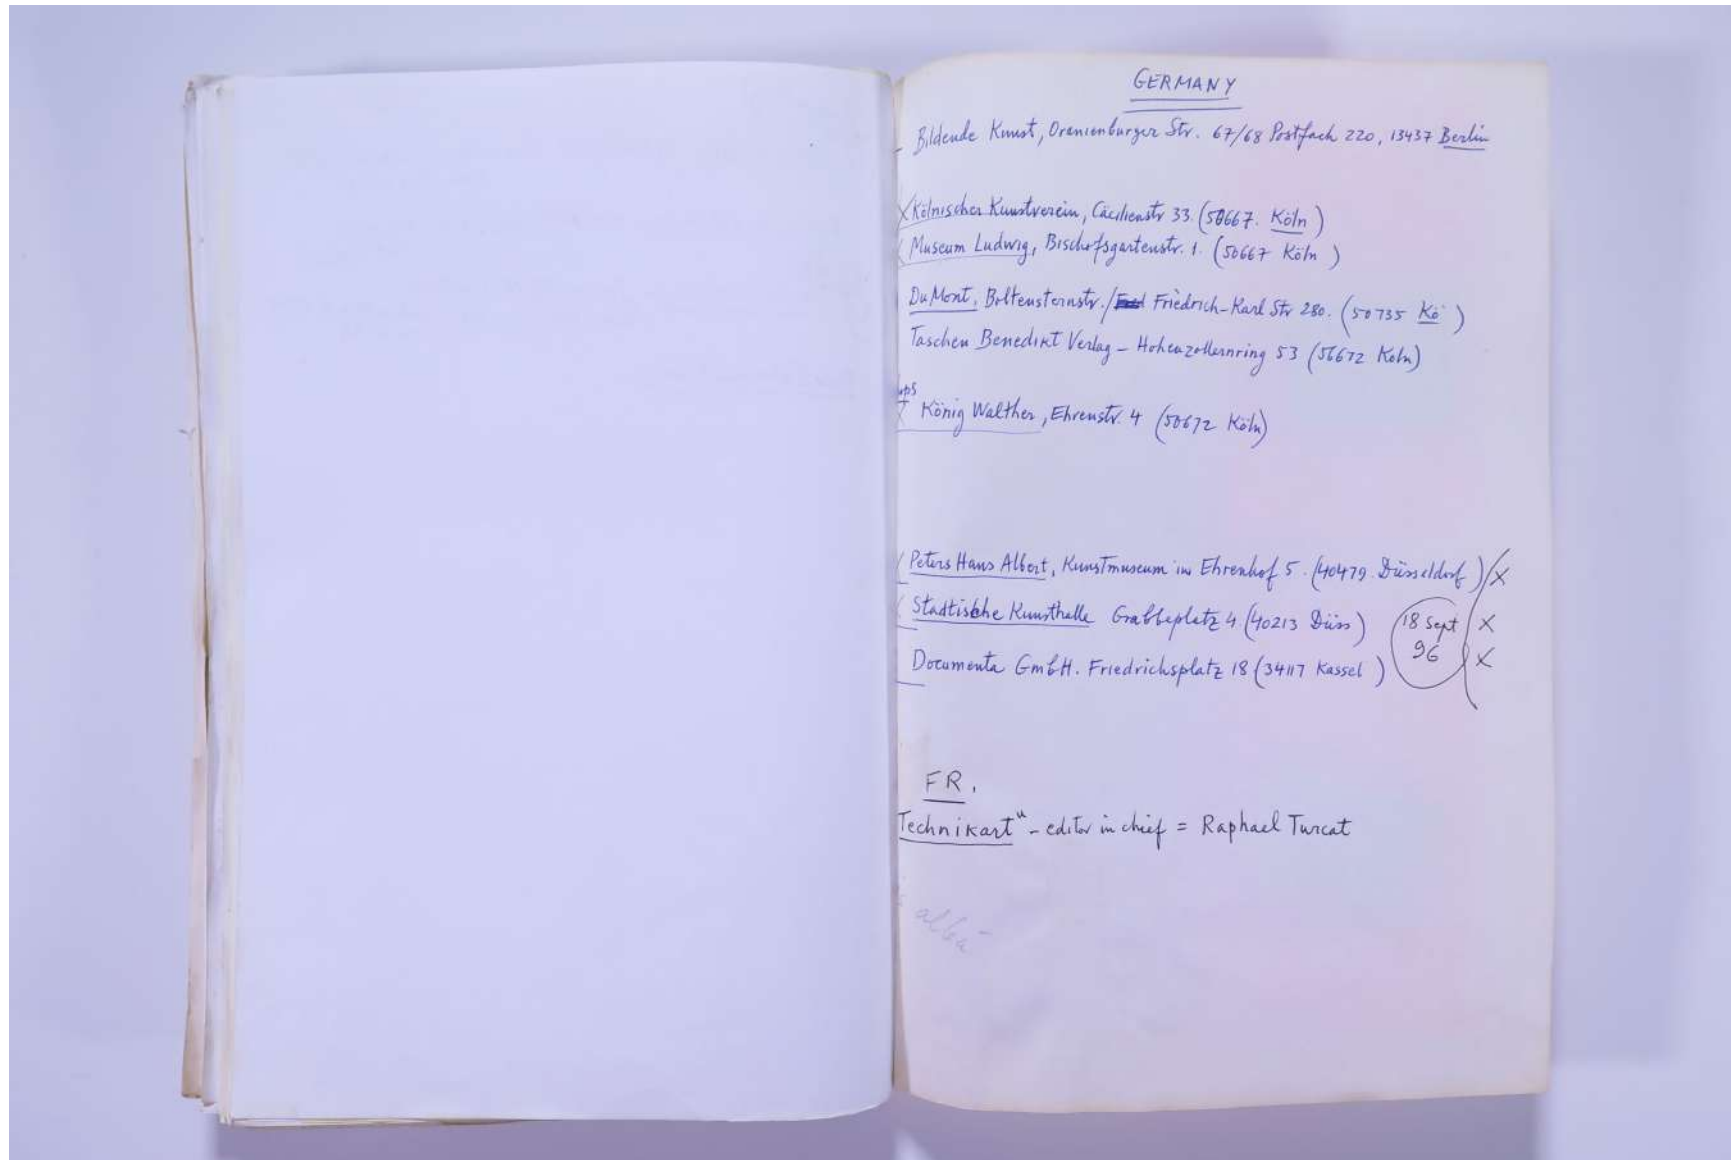 GERMANY
- Bildende Kunst, Oranienburger Str. 67/68 Postfach 220, 13437 Berlin
X Kölnischer Kunstverein, Cäcilienstr 33. (50667. Köln)
Museum Ludwig, Bischofsgartenstr. 1. (50667 Köln)
DuMont, Boltensternstr./ Friedrich-Karl Str 280. (50735 Kö)
Taschen Benedikt Verlag - Hohenzollernring 53 (50672 Köln)
X König Walther, Ehrenstr. 4 (50672 Köln)
Peters Hans Albert, Kunstmuseum im Ehrenhof 5. (40479 Düsseldorf) X
Städtische Kunsthalle Grabbeplatz 4 (40213 Düss) 18 Sept X
Documenta GmbH. Friedrichsplatz 18 (34117 Kassel) 96 X
FR.
Technikart" - editor in chief = Raphael Turcat